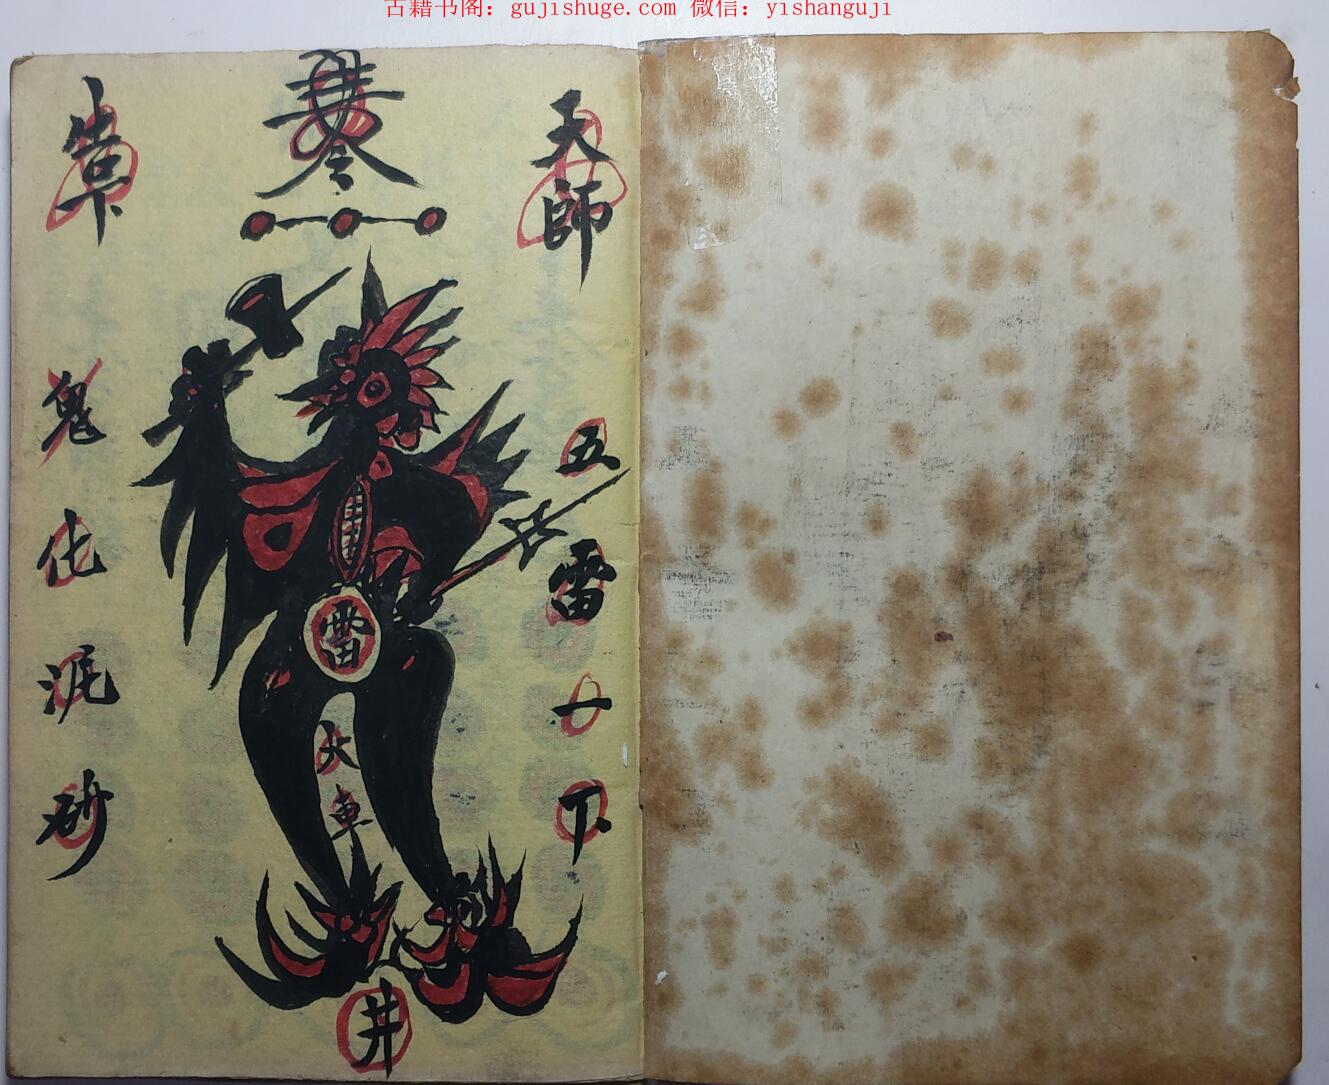 古籍书阁：gujishuge.com 微信：yishanguji
天師
五雷一下
雷
火車
井
鬼化泥砂